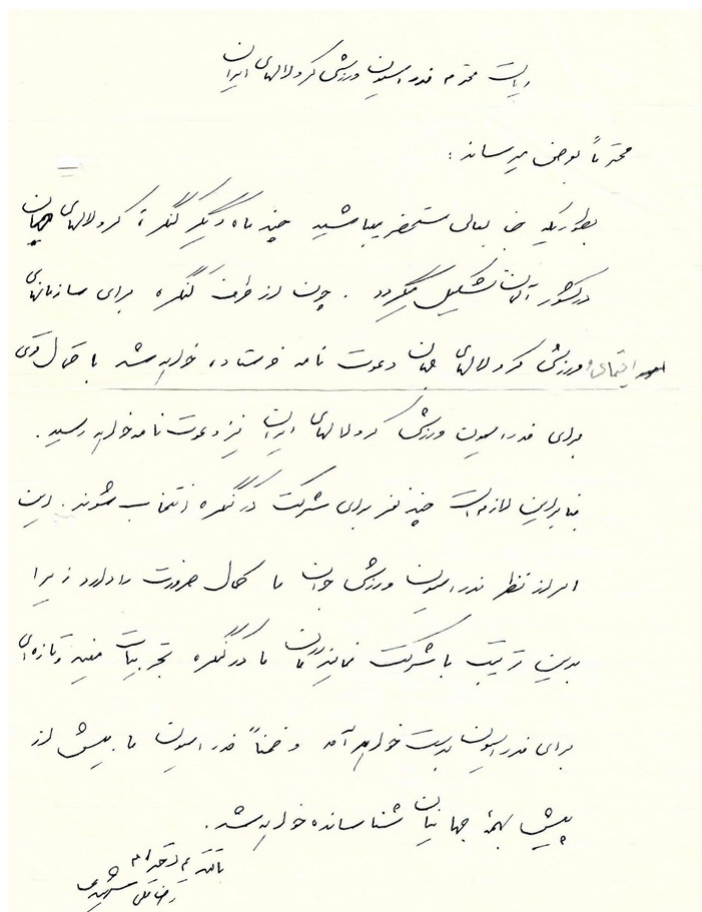 ریاست محترم فدراسیون ورزشی کرولالهای ایران
محترماً بعرض میرساند :
بطوریکه جنابعالی مستحضر میباشید چند ماه دیگر کنگرهٔ کرولالهای جهان
در کشور آلمان تشکیل میگردد . چون از طرف کنگره برای سازمانهای
اجتماعی و ورزشی کرولالهای جهان دعوت نامه فرستاده خواهد شد با احتمال قوی
برای فدراسیون ورزشی کرولالهای ایران نیز دعوت نامه خواهد رسید .
بنابراین لازم است چند نفر برای شرکت در کنگره انتخاب شوند . این
امر از نظر فدراسیون ورزشی جوان ما کمال ضرورت را دارد زیرا
بدین ترتیب با شرکت نمایندگان ما در کنگره تجربیات مفید و تازه‌ای
برای فدراسیون بدست خواهد آمد و ضمناً فدراسیون ما بیش از
پیش بهمهٔ جهانیان شناسانده خواهد شد .
با تقدیم احترام
رضاقلی شهیدی